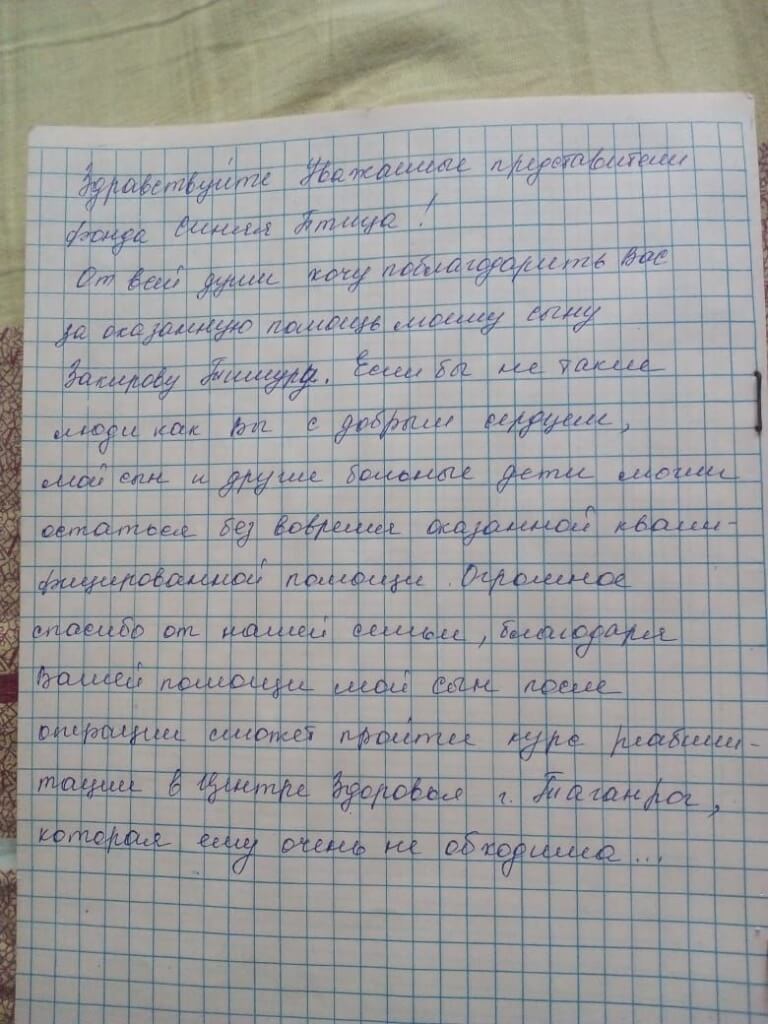 Здравствуйте Уважаемые представители
фонда Синяя Птица!
От всей души хочу поблагодарить Вас
за оказанную помощь моему сыну
Закирову Тимуру. Если бы не такие
люди как Вы с добрым сердцем,
мой сын и другие больные дети могли
остаться без вовремя оказанной квали-
фицированной помощи. Огромное
спасибо от нашей семьи, благодаря
Вашей помощи мой сын после
операции сможет пройти курс реабили-
тации в Центре Здоровья г. Таганрог,
которая ему очень не обходима...